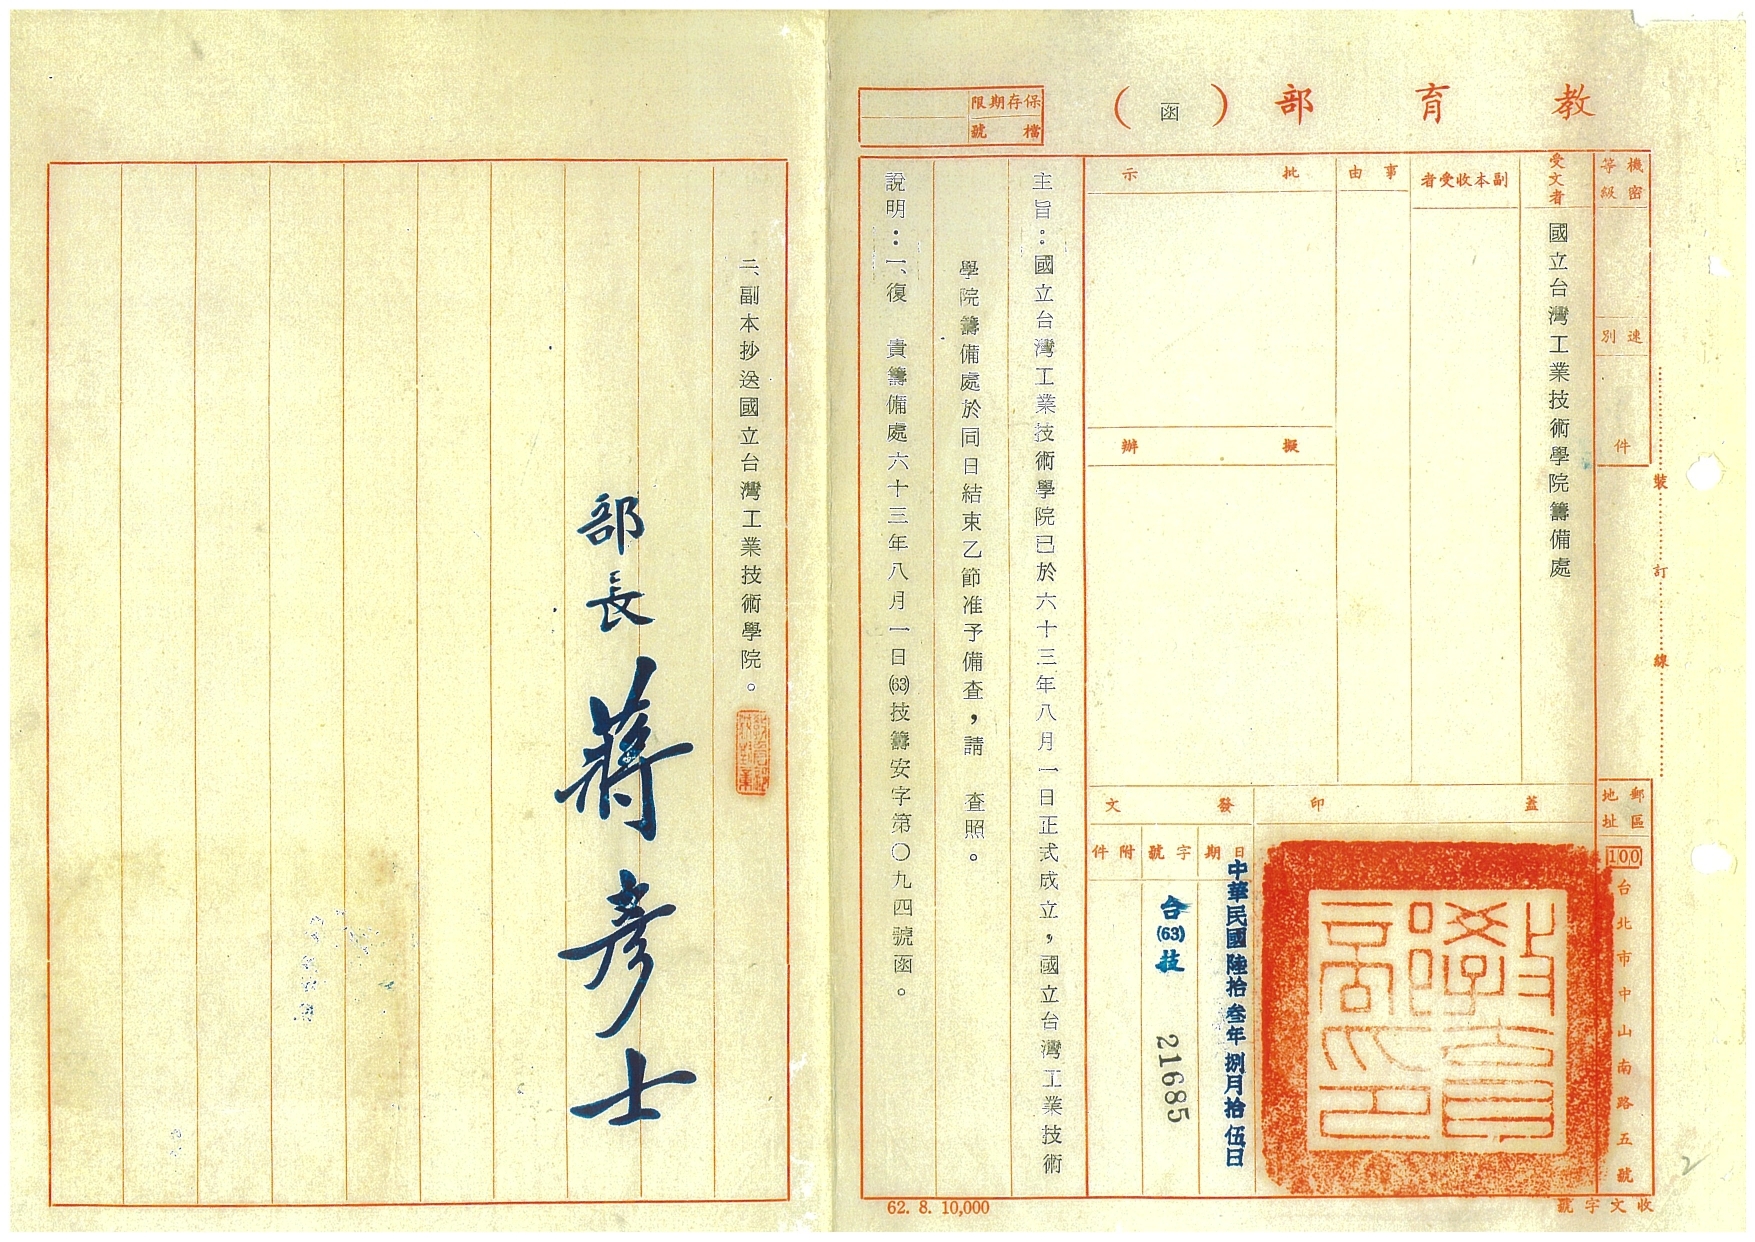 教育部（函）
保存期限
檔號
機密等級
速別
件
受文者
國立台灣工業技術學院籌備處
副本收受者
事由
批示
擬辦
蓋印
發文
日期
字號
附件
中華民國陸拾叁年捌月拾伍日
台(63)技
21685
教育部印
郵區地址
100
台北市中山南路五號
裝訂線
主旨：國立台灣工業技術學院已於六十三年八月一日正式成立，國立台灣工業技術
學院籌備處於同日結束乙節准予備查，請　查照。
說明：一、復　貴籌備處六十三年八月一日(63)技籌安字第〇九四號函。
62. 8. 10,000
收文字號
二、副本抄送國立台灣工業技術學院。
部長 蔣彥士
2